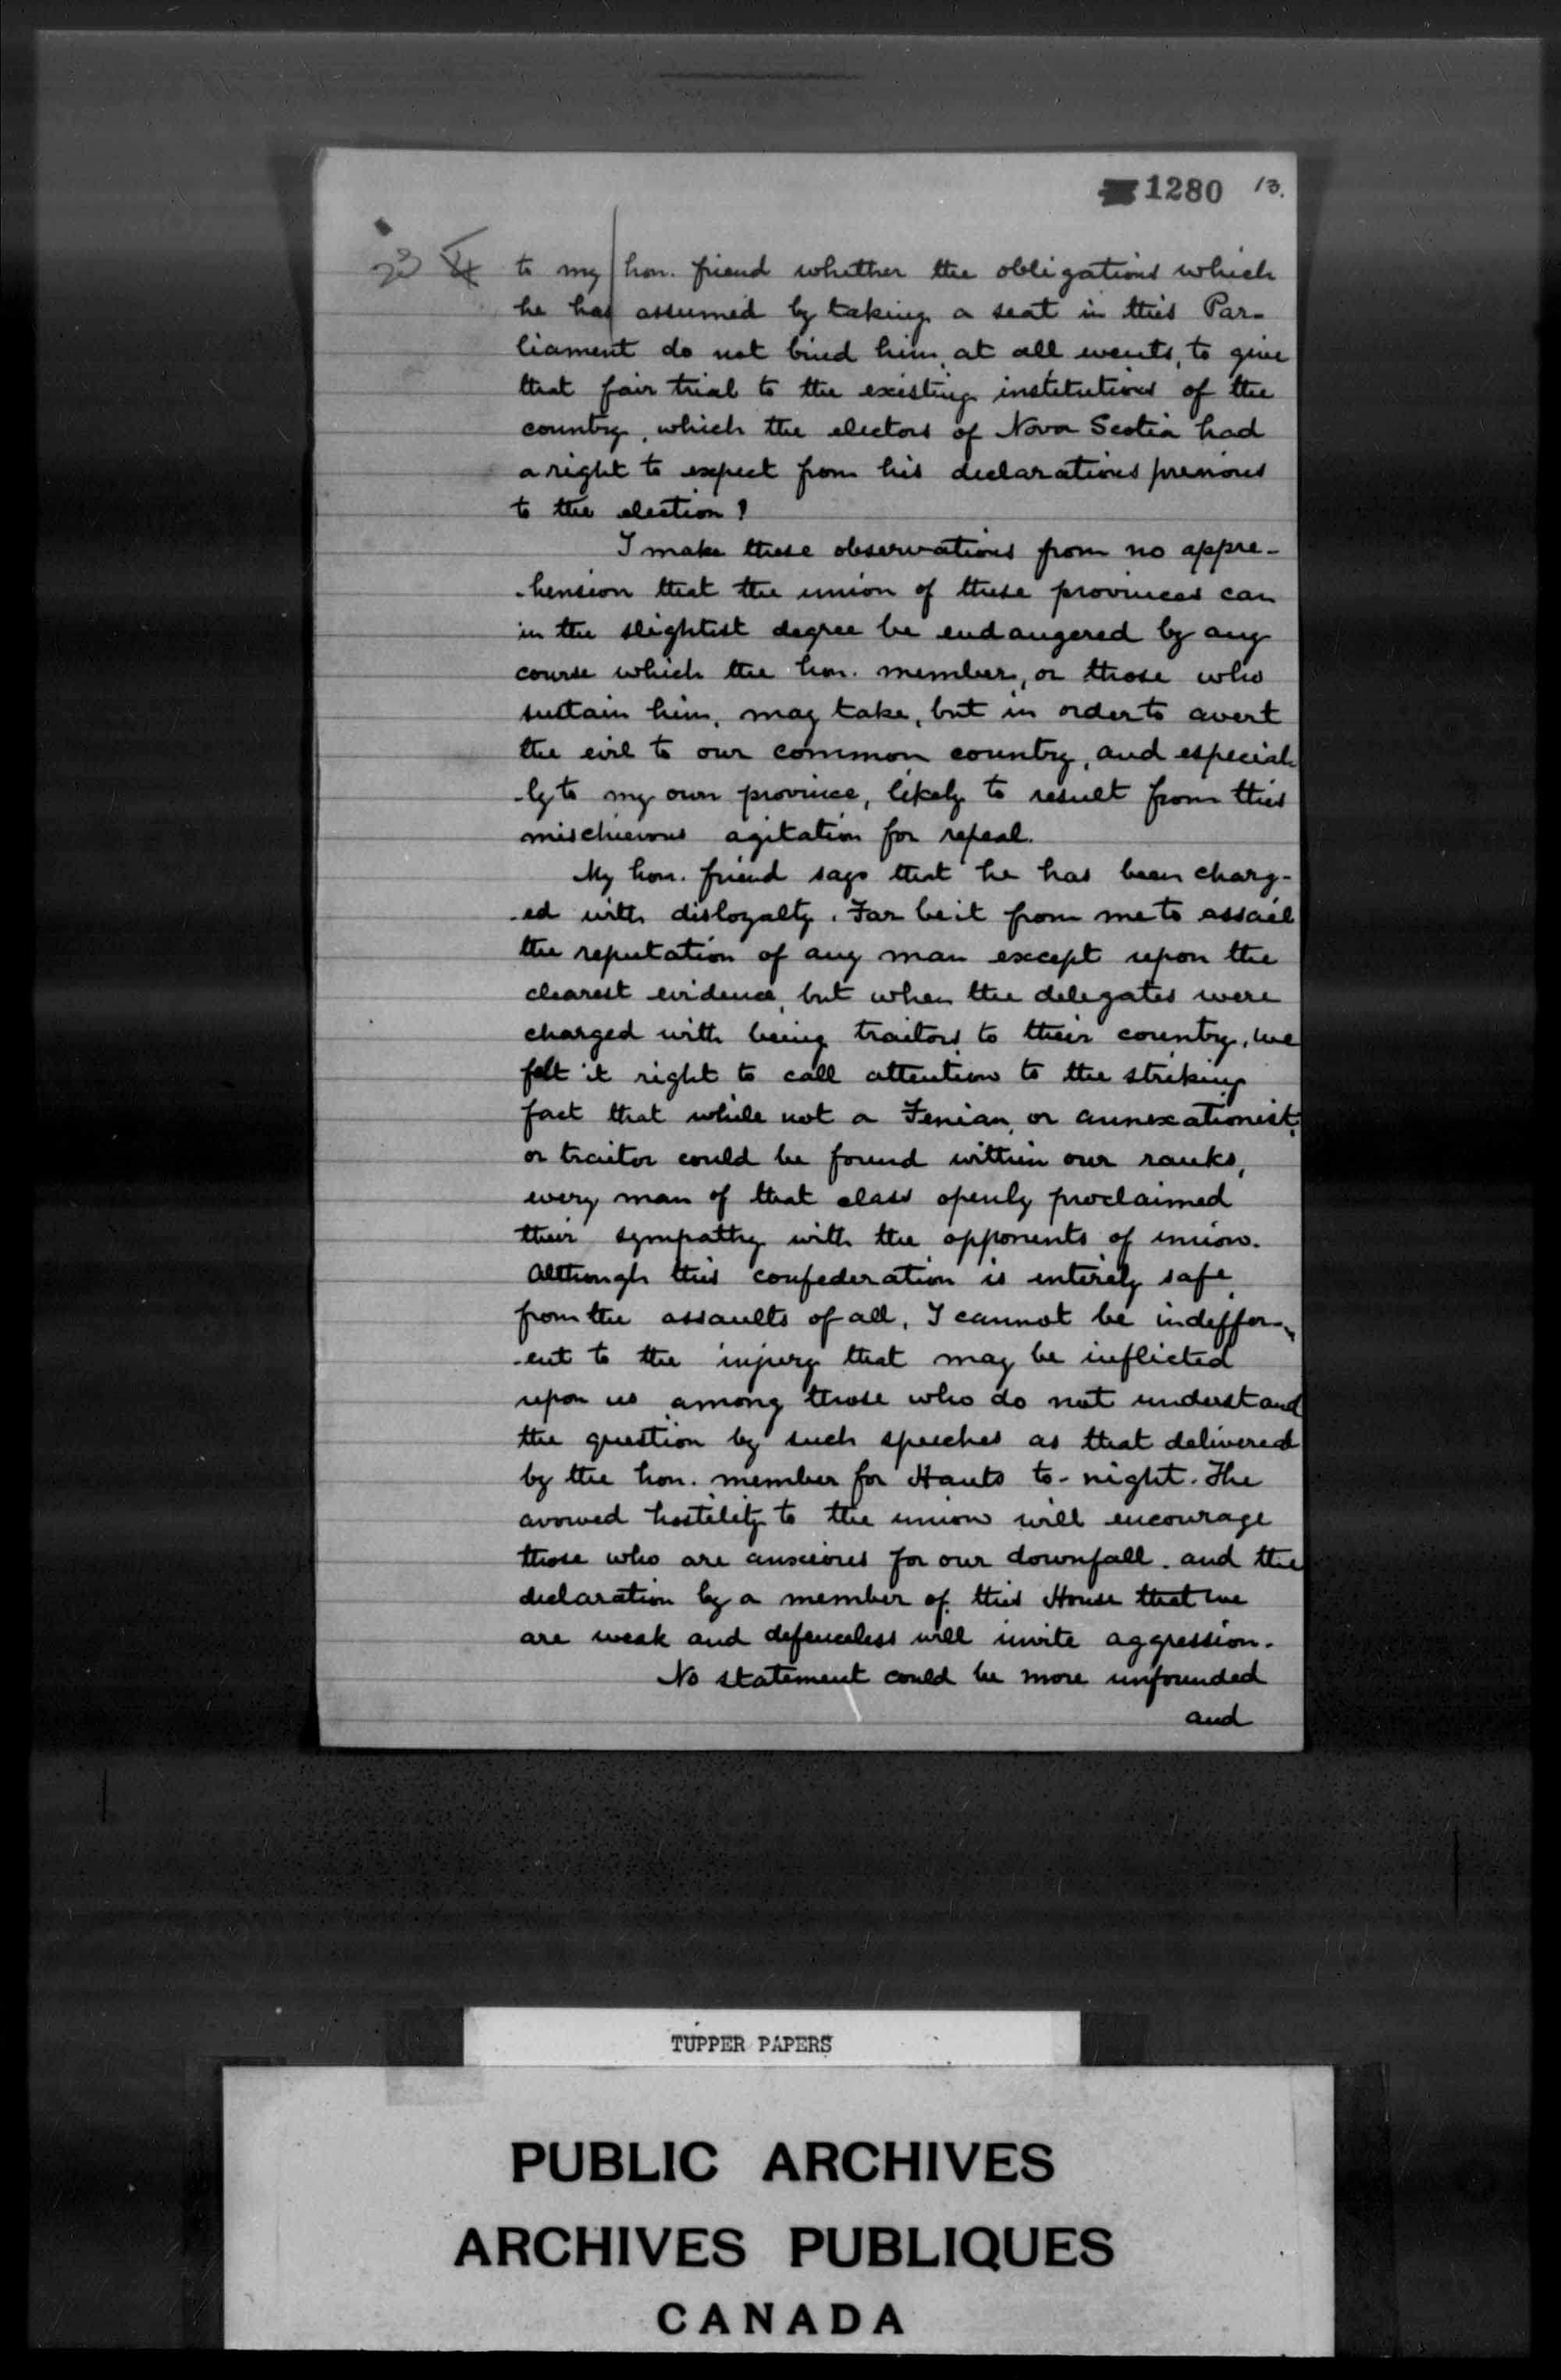 1280 13.
to my hon. friend whether the obligations which
he has assumed by taking a seat in this Par-
liament do not bind him, at all events, to give
that fair trial to the existing institutions of the
country, which the electors of Nova Scotia had
a right to expect from his declarations previous
to the election?
I make these observations from no appre-
-hension that the union of these provinces can
in the slightest degree be endangered by any
course which the hon. member, or those who
sustain him, may take, but in order to avert
the evil to our common country, and especial-
-ly to my own province, likely to result from this
mischievous agitation for repeal.
My hon. friend says that he has been charg-
-ed with disloyalty. Far be it from me to assail
the reputation of any man except upon the
clearest evidence, but when the delegates were
charged with being traitors to their country, we
felt it right to call attention to the striking
fact that while not a Fenian, or annexationist,
or traitor could be found within our ranks,
every man of that class openly proclaimed
their sympathy with the opponents of union.
Although this confederation is entirely safe
from the assaults of all, I cannot be indeffer-
-ent to the injury that may be inflicted
upon us among those who do not understand
the question by such speeches as that delivered
by the hon. member for Hants to-night. The
avowed hostility to the union will encourage
those who are anxious for our downfall. and the
declaration by a member of this House that we
are weak and defenceless will invite aggression.
No statement could be more unfounded
and
TUPPER PAPERS
PUBLIC ARCHIVES
ARCHIVES PUBLIQUES
CANADA